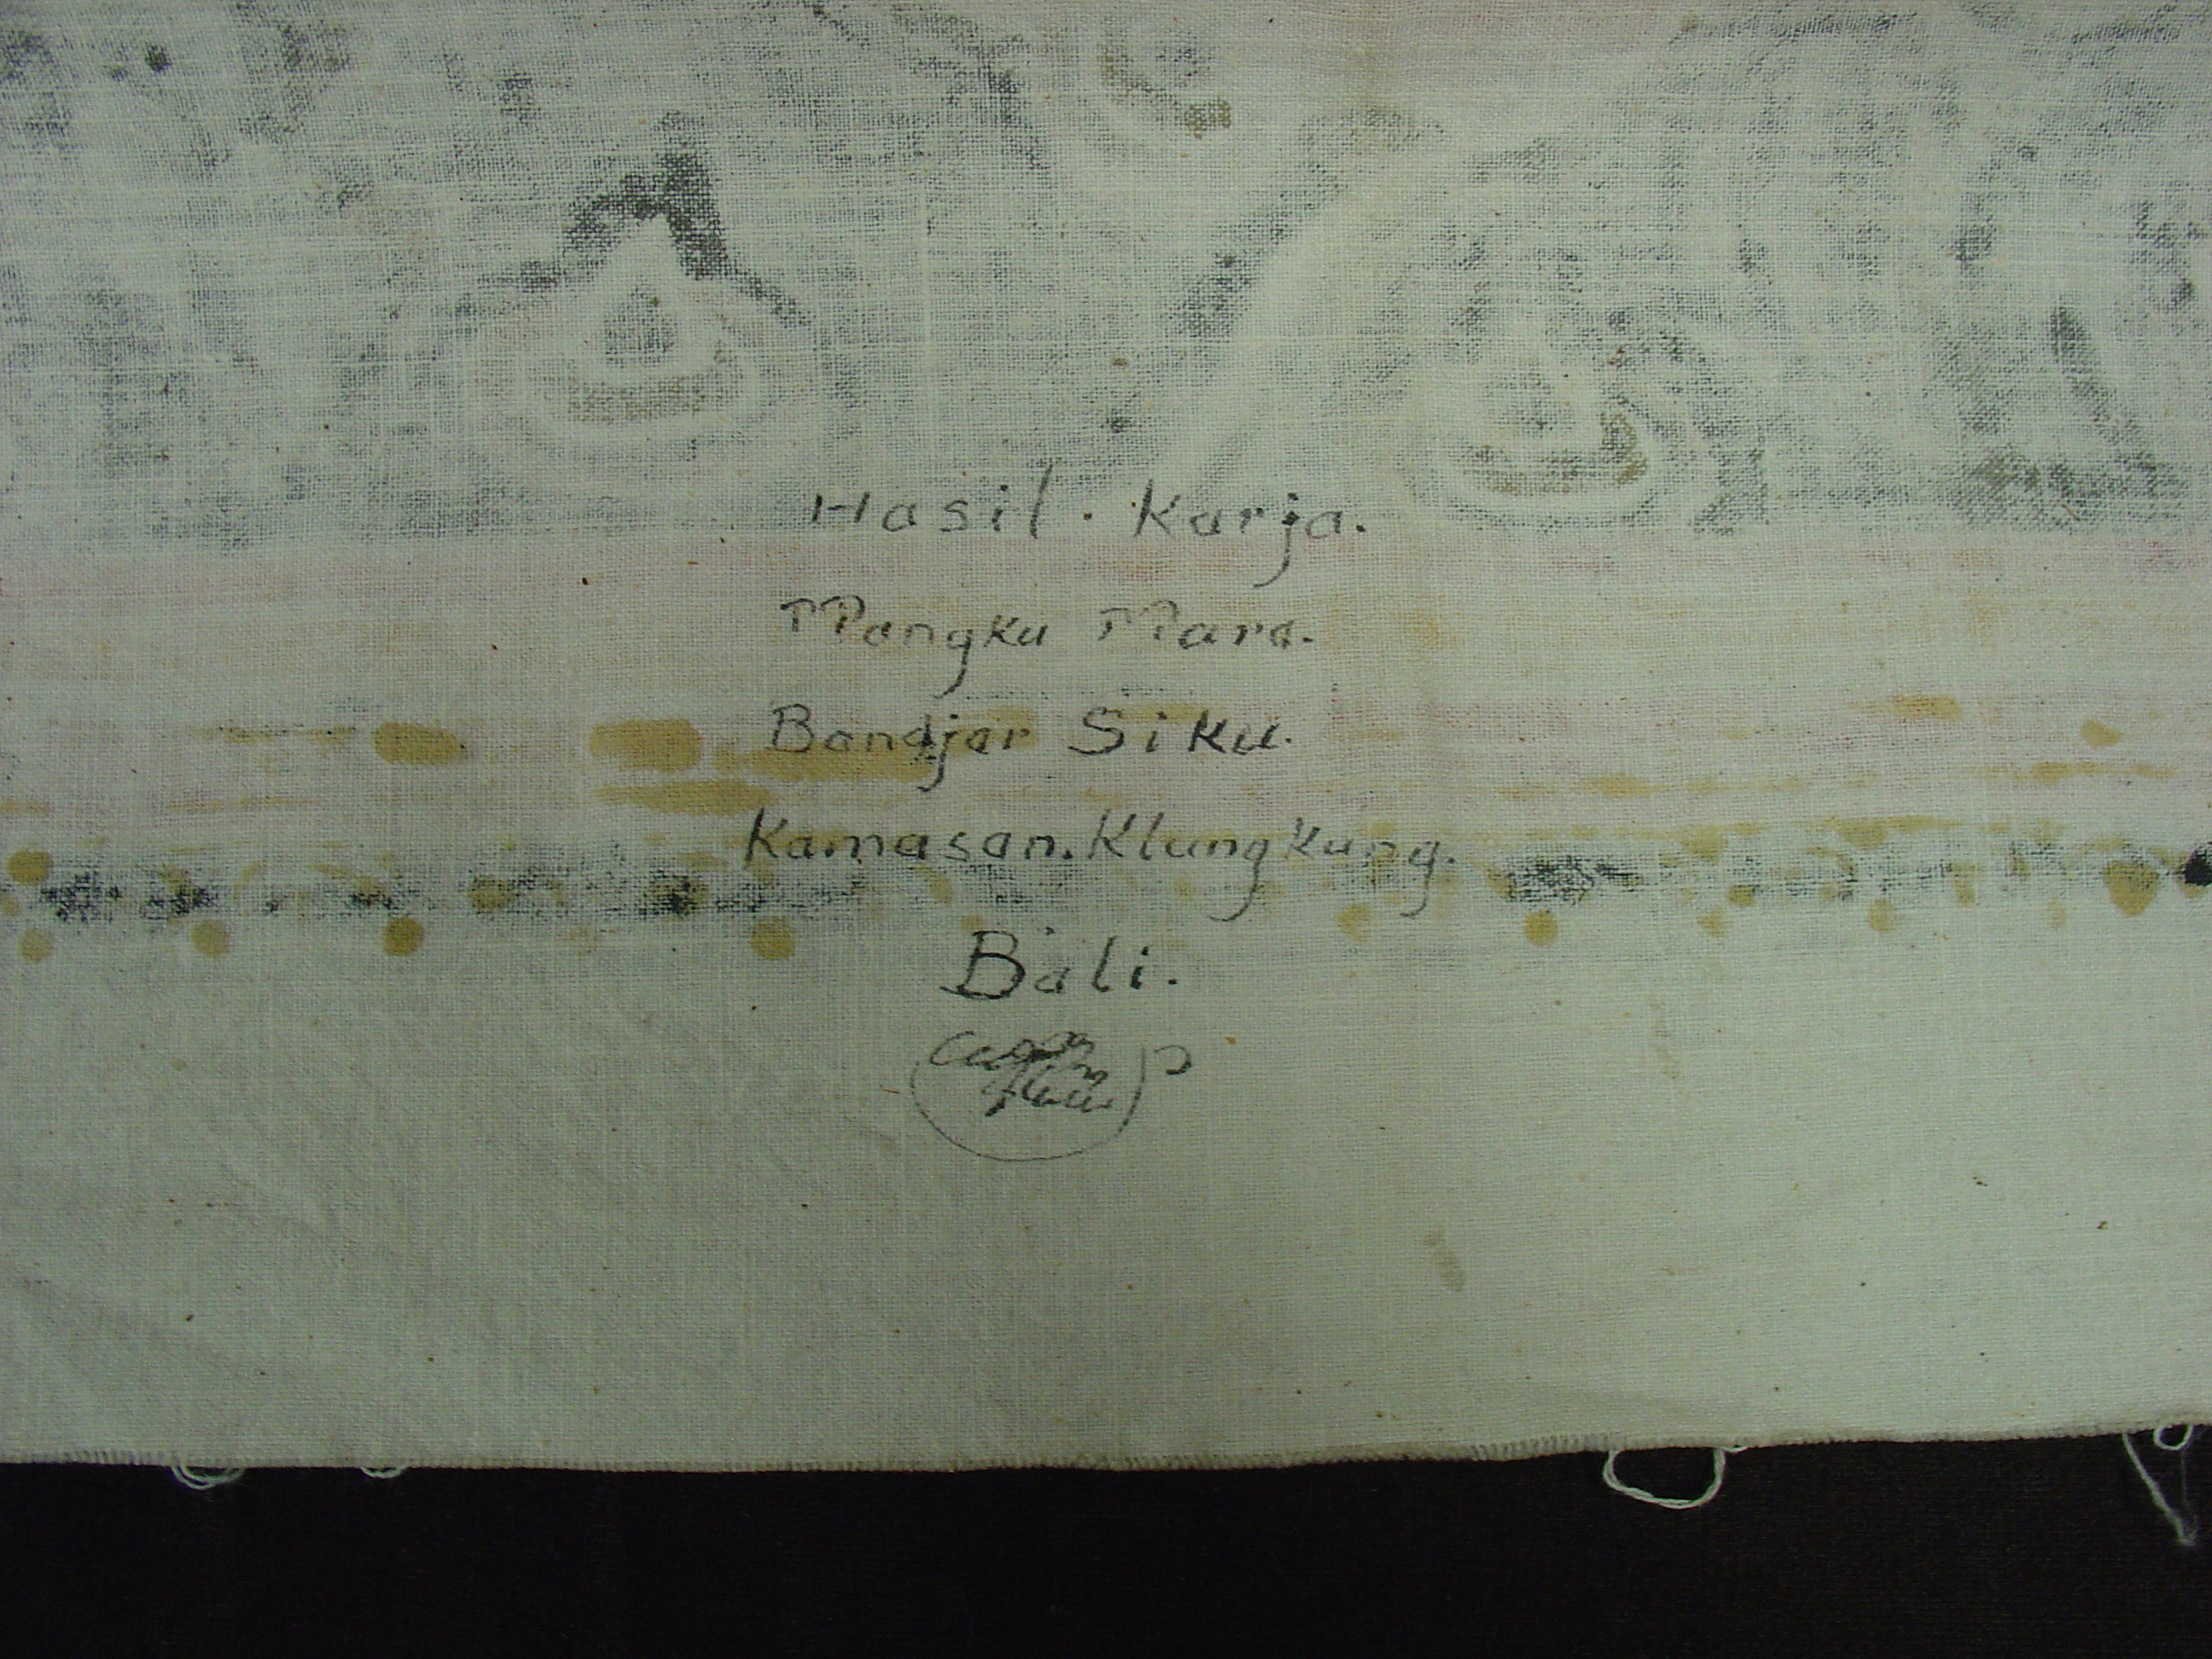 Hasil. Karja.
Mangku Mara.
Bandjar Siku.
Kamasan. Klungkung.
Bali.